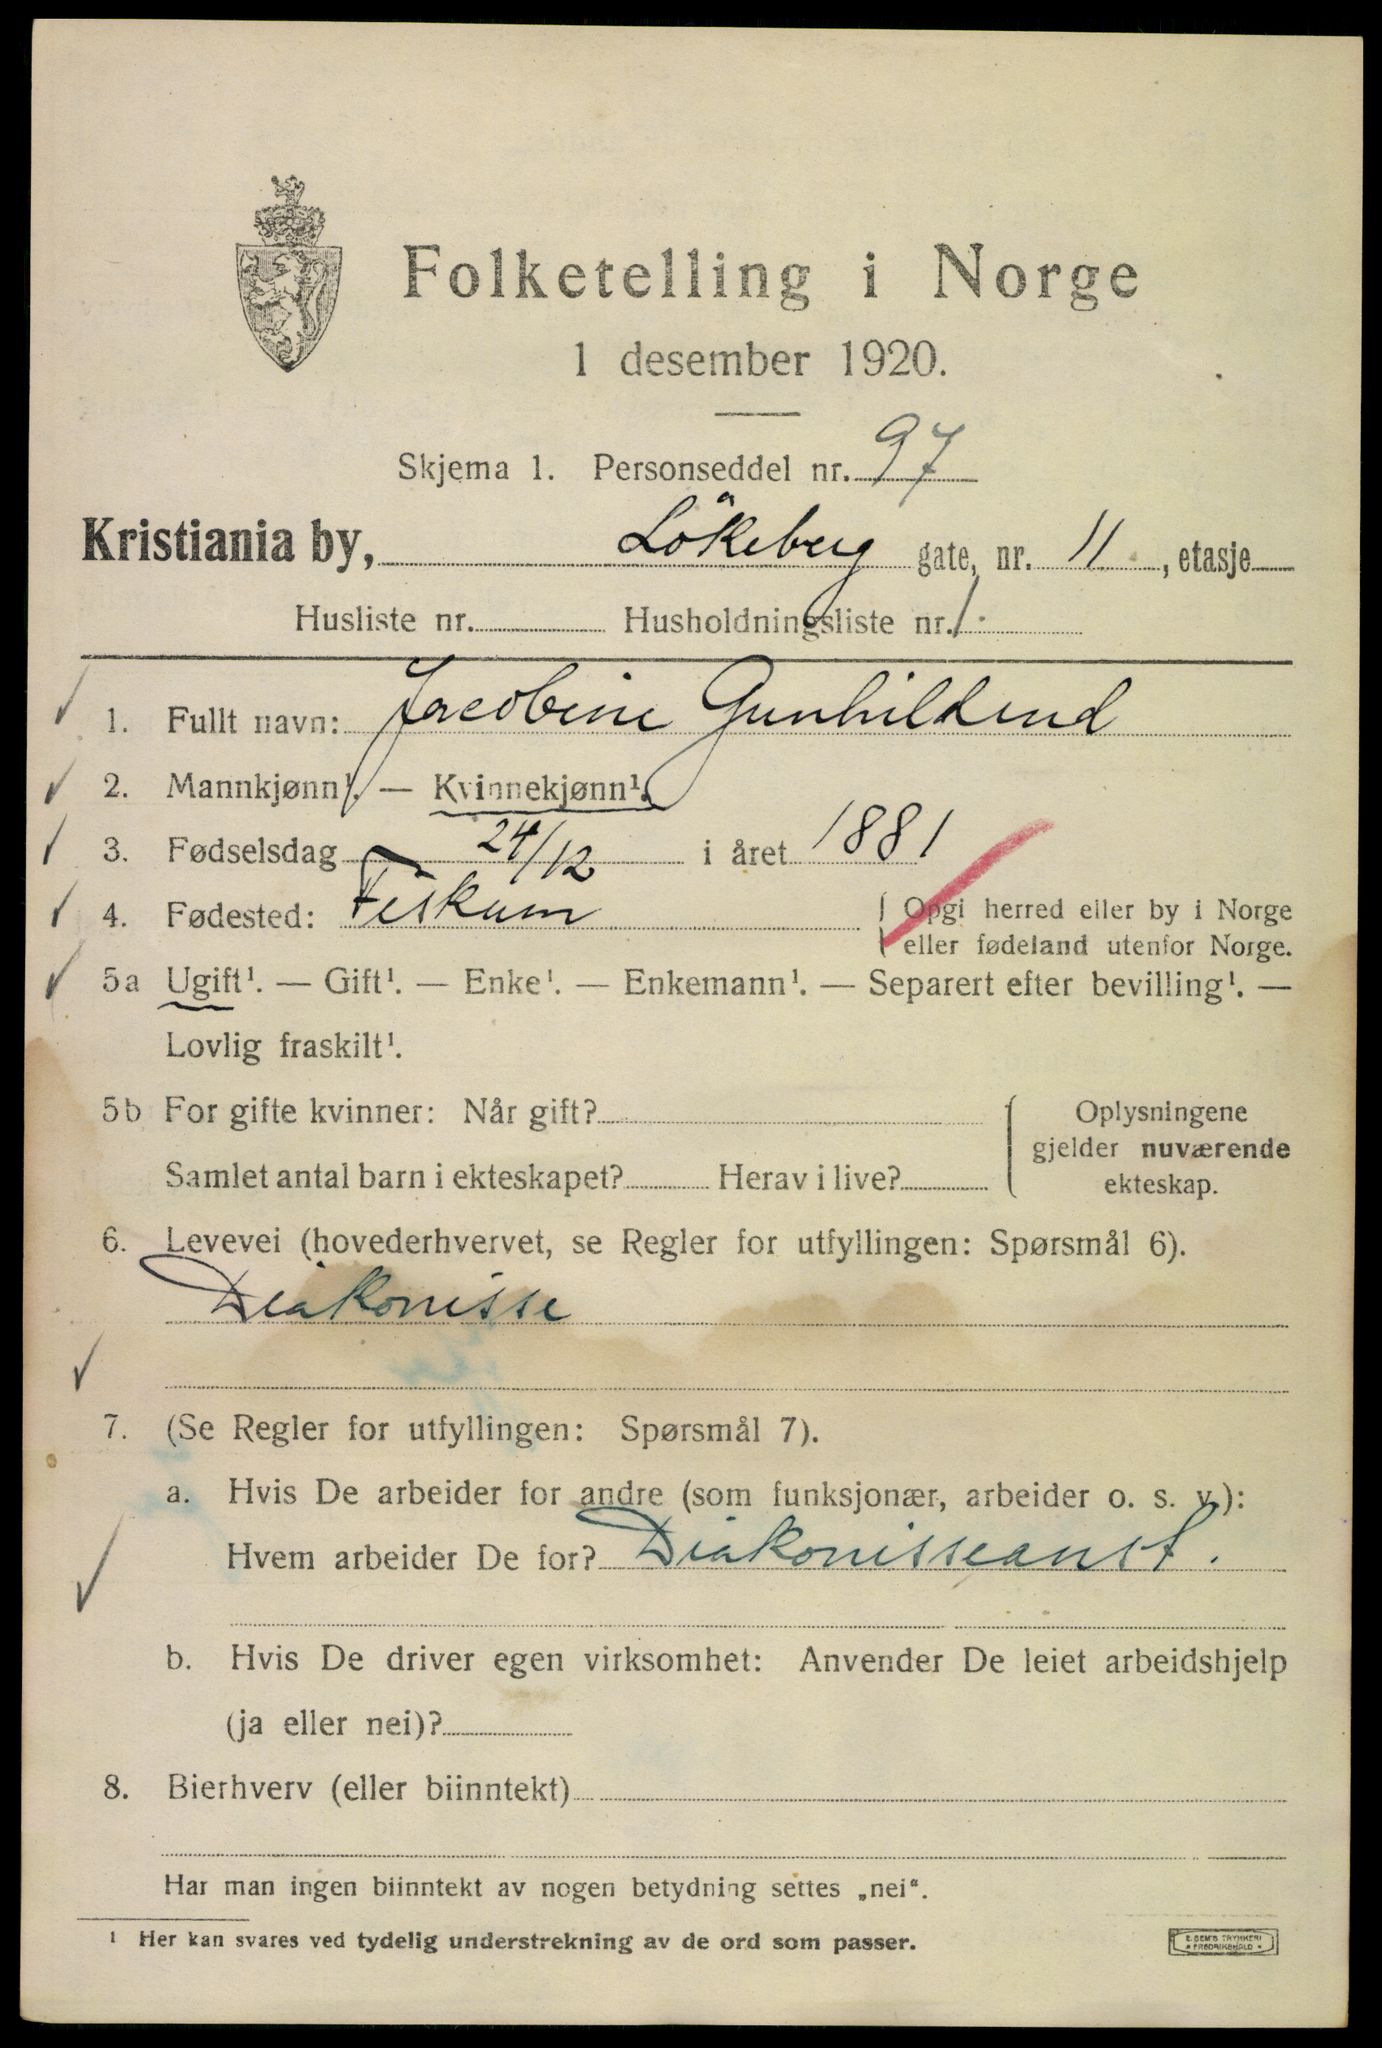 Folketelling i Norge
1 desember 1920.
Skjema 1. Personseddel nr. 97
Kristiania by, Lökeberg gate, nr. 11 , etasje
Husliste nr. Husholdningsliste nr. 1.
1. Fullt navn: Jacobine Gunhildrud
2. Mannkjønn¹. — Kvinnekjønn¹.
3. Fødselsdag 24/12 i året 1881
4. Fødested: Fiskum { Opgi herred eller by i Norge
eller fødeland utenfor Norge.
5a Ugift¹. — Gift¹. — Enke¹. — Enkemann¹. — Separert efter bevilling¹. —
Lovlig fraskilt¹.
5b For gifte kvinner: Når gift? { Oplysningene
gjelder nuværende
Samlet antal barn i ekteskapet? Herav i live? ekteskap.
6. Levevei (hovederhvervet, se Regler for utfyllingen: Spørsmål 6).
Diakonisse
7. (Se Regler for utfyllingen: Spørsmål 7).
a. Hvis De arbeider for andre (som funksjonær, arbeider o. s. v.):
Hvem arbeider De for? Diakonisseanst.
b. Hvis De driver egen virksomhet: Anvender De leiet arbeidshjelp
(ja eller nei)?
8. Bierhverv (eller biinntekt)
Har man ingen biinntekt av nogen betydning settes „nei“.
¹ Her kan svares ved tydelig understrekning av de ord som passer.
E. SEM'S TRYKKERI
FREDRIKSHALD